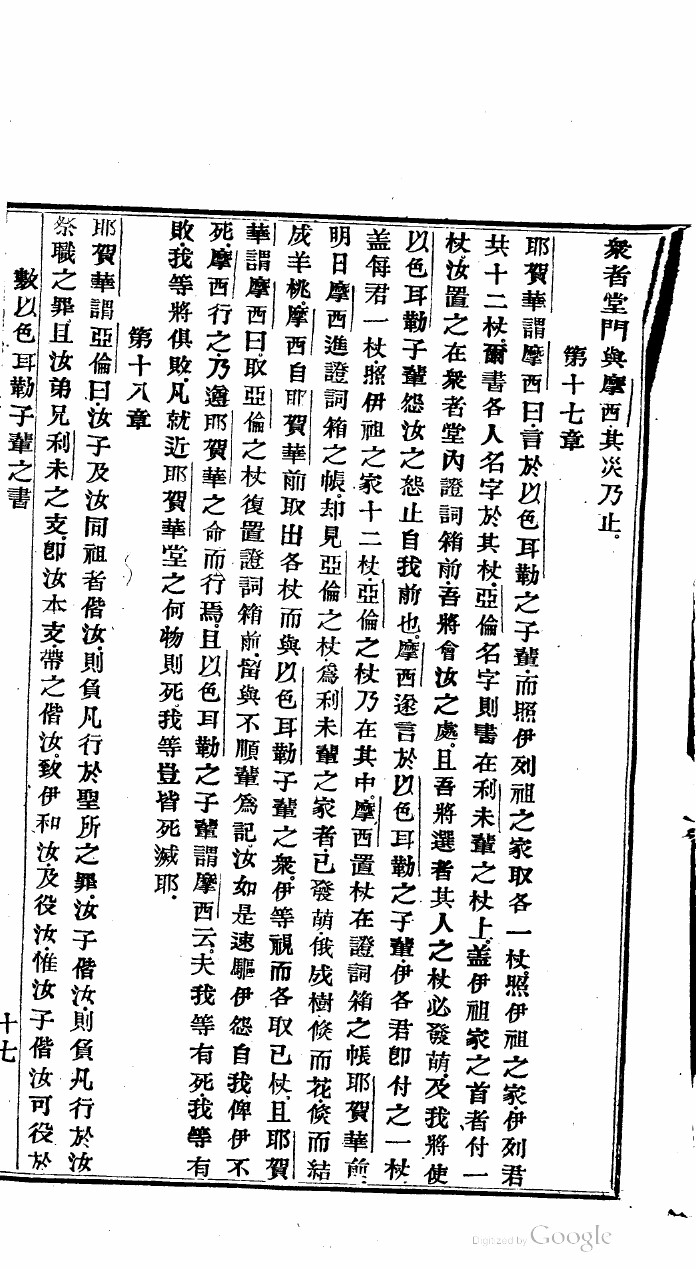 衆者堂門與摩西其災乃止。
第十七章
耶賀華謂摩西曰·言於以色耳勒之子輩·而照伊列祖之家取各一杖·照伊祖之家·伊列君
共十二杖·爾書各人名字於其杖·亞倫名字則書在利未輩之杖上·蓋伊祖家之首者付一
杖·汝置之在衆者堂內證詞箱前·吾將會汝之處·且吾將選者其人之杖必發萌·及我將使
以色耳勒子輩怨汝之怨止自我前也·摩西遂言於以色耳勒之子輩·伊各君卽付之一杖·
蓋每君一杖·照伊祖之家十二杖·亞倫之杖乃在其中·摩西置杖在證詞箱之帳耶賀華前·
明日摩西進證詞箱之帳·却見亞倫之杖·爲利未輩之家者已發萌·俄成樹倐而花·倐而結
成羊桃·摩西自耶賀華前取出各杖而與以色耳勒子輩之衆·伊等視而各取已杖·且耶賀
華謂摩西曰·取亞倫之杖復置證詞箱前·留與不順輩爲記·汝如是速驅伊怨自我·俾伊不
死·摩西行之·乃遵耶賀華之命而行焉·且以色耳勒之子輩謂摩西云·夫我等有死·我等有
敗·我等將俱敗·凡就近耶賀華堂之何物則死·我等豈皆死滅耶·
第十八章
耶賀華謂亞倫曰·汝子及汝同祖者偕汝·則負凡行於聖所之罪·汝子偕汝·則負凡行於汝
祭職之罪·且汝弟兄利未之支·卽汝本支·帶之偕汝·致伊和汝·及役汝·惟汝子偕汝可役於
數以色耳勒子輩之書
十七
Digitized by Google